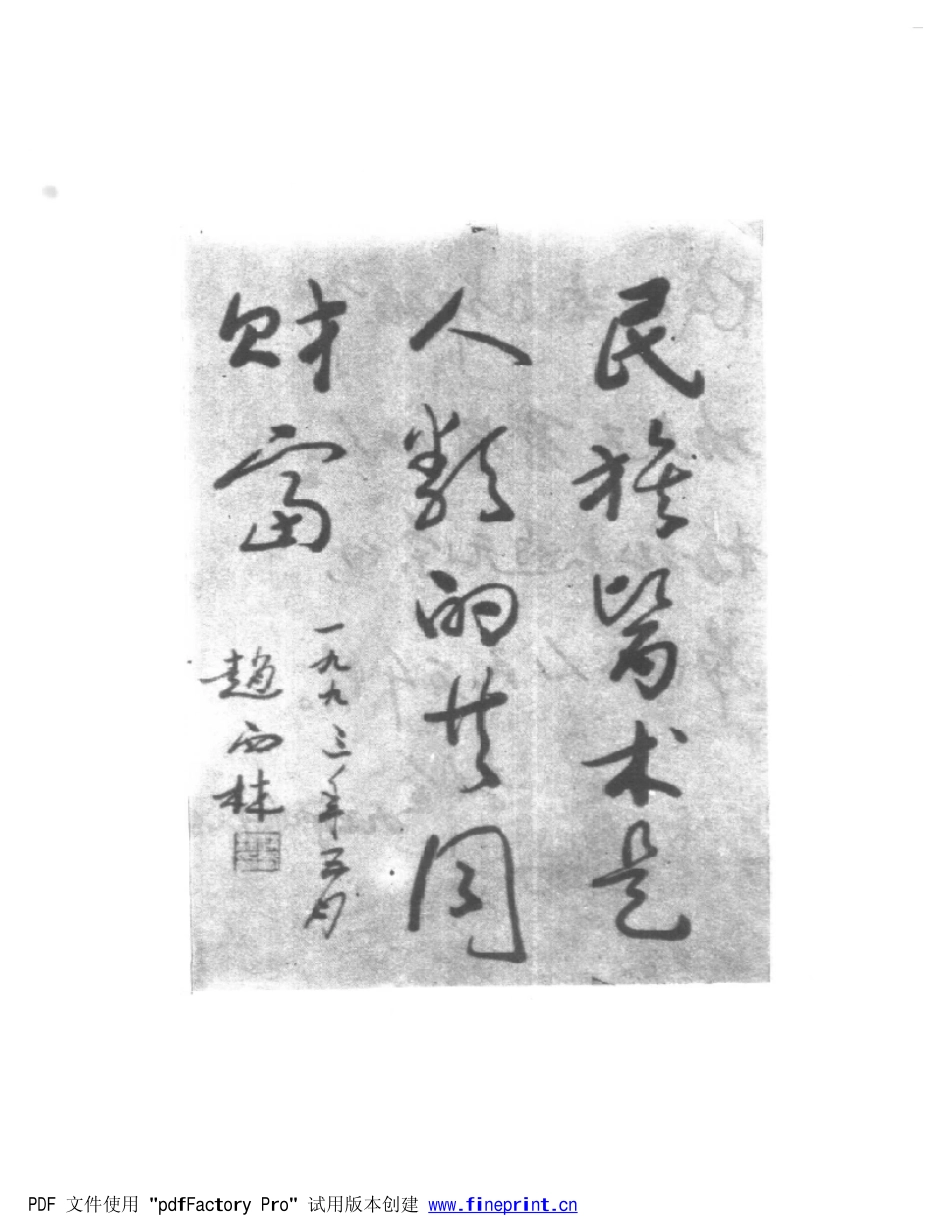 民族醫术是
人類的共同
财富
一九九三年五月
趙西林
PDF 文件使用 "pdfFactory Pro" 试用版本创建 www.fineprint.cn